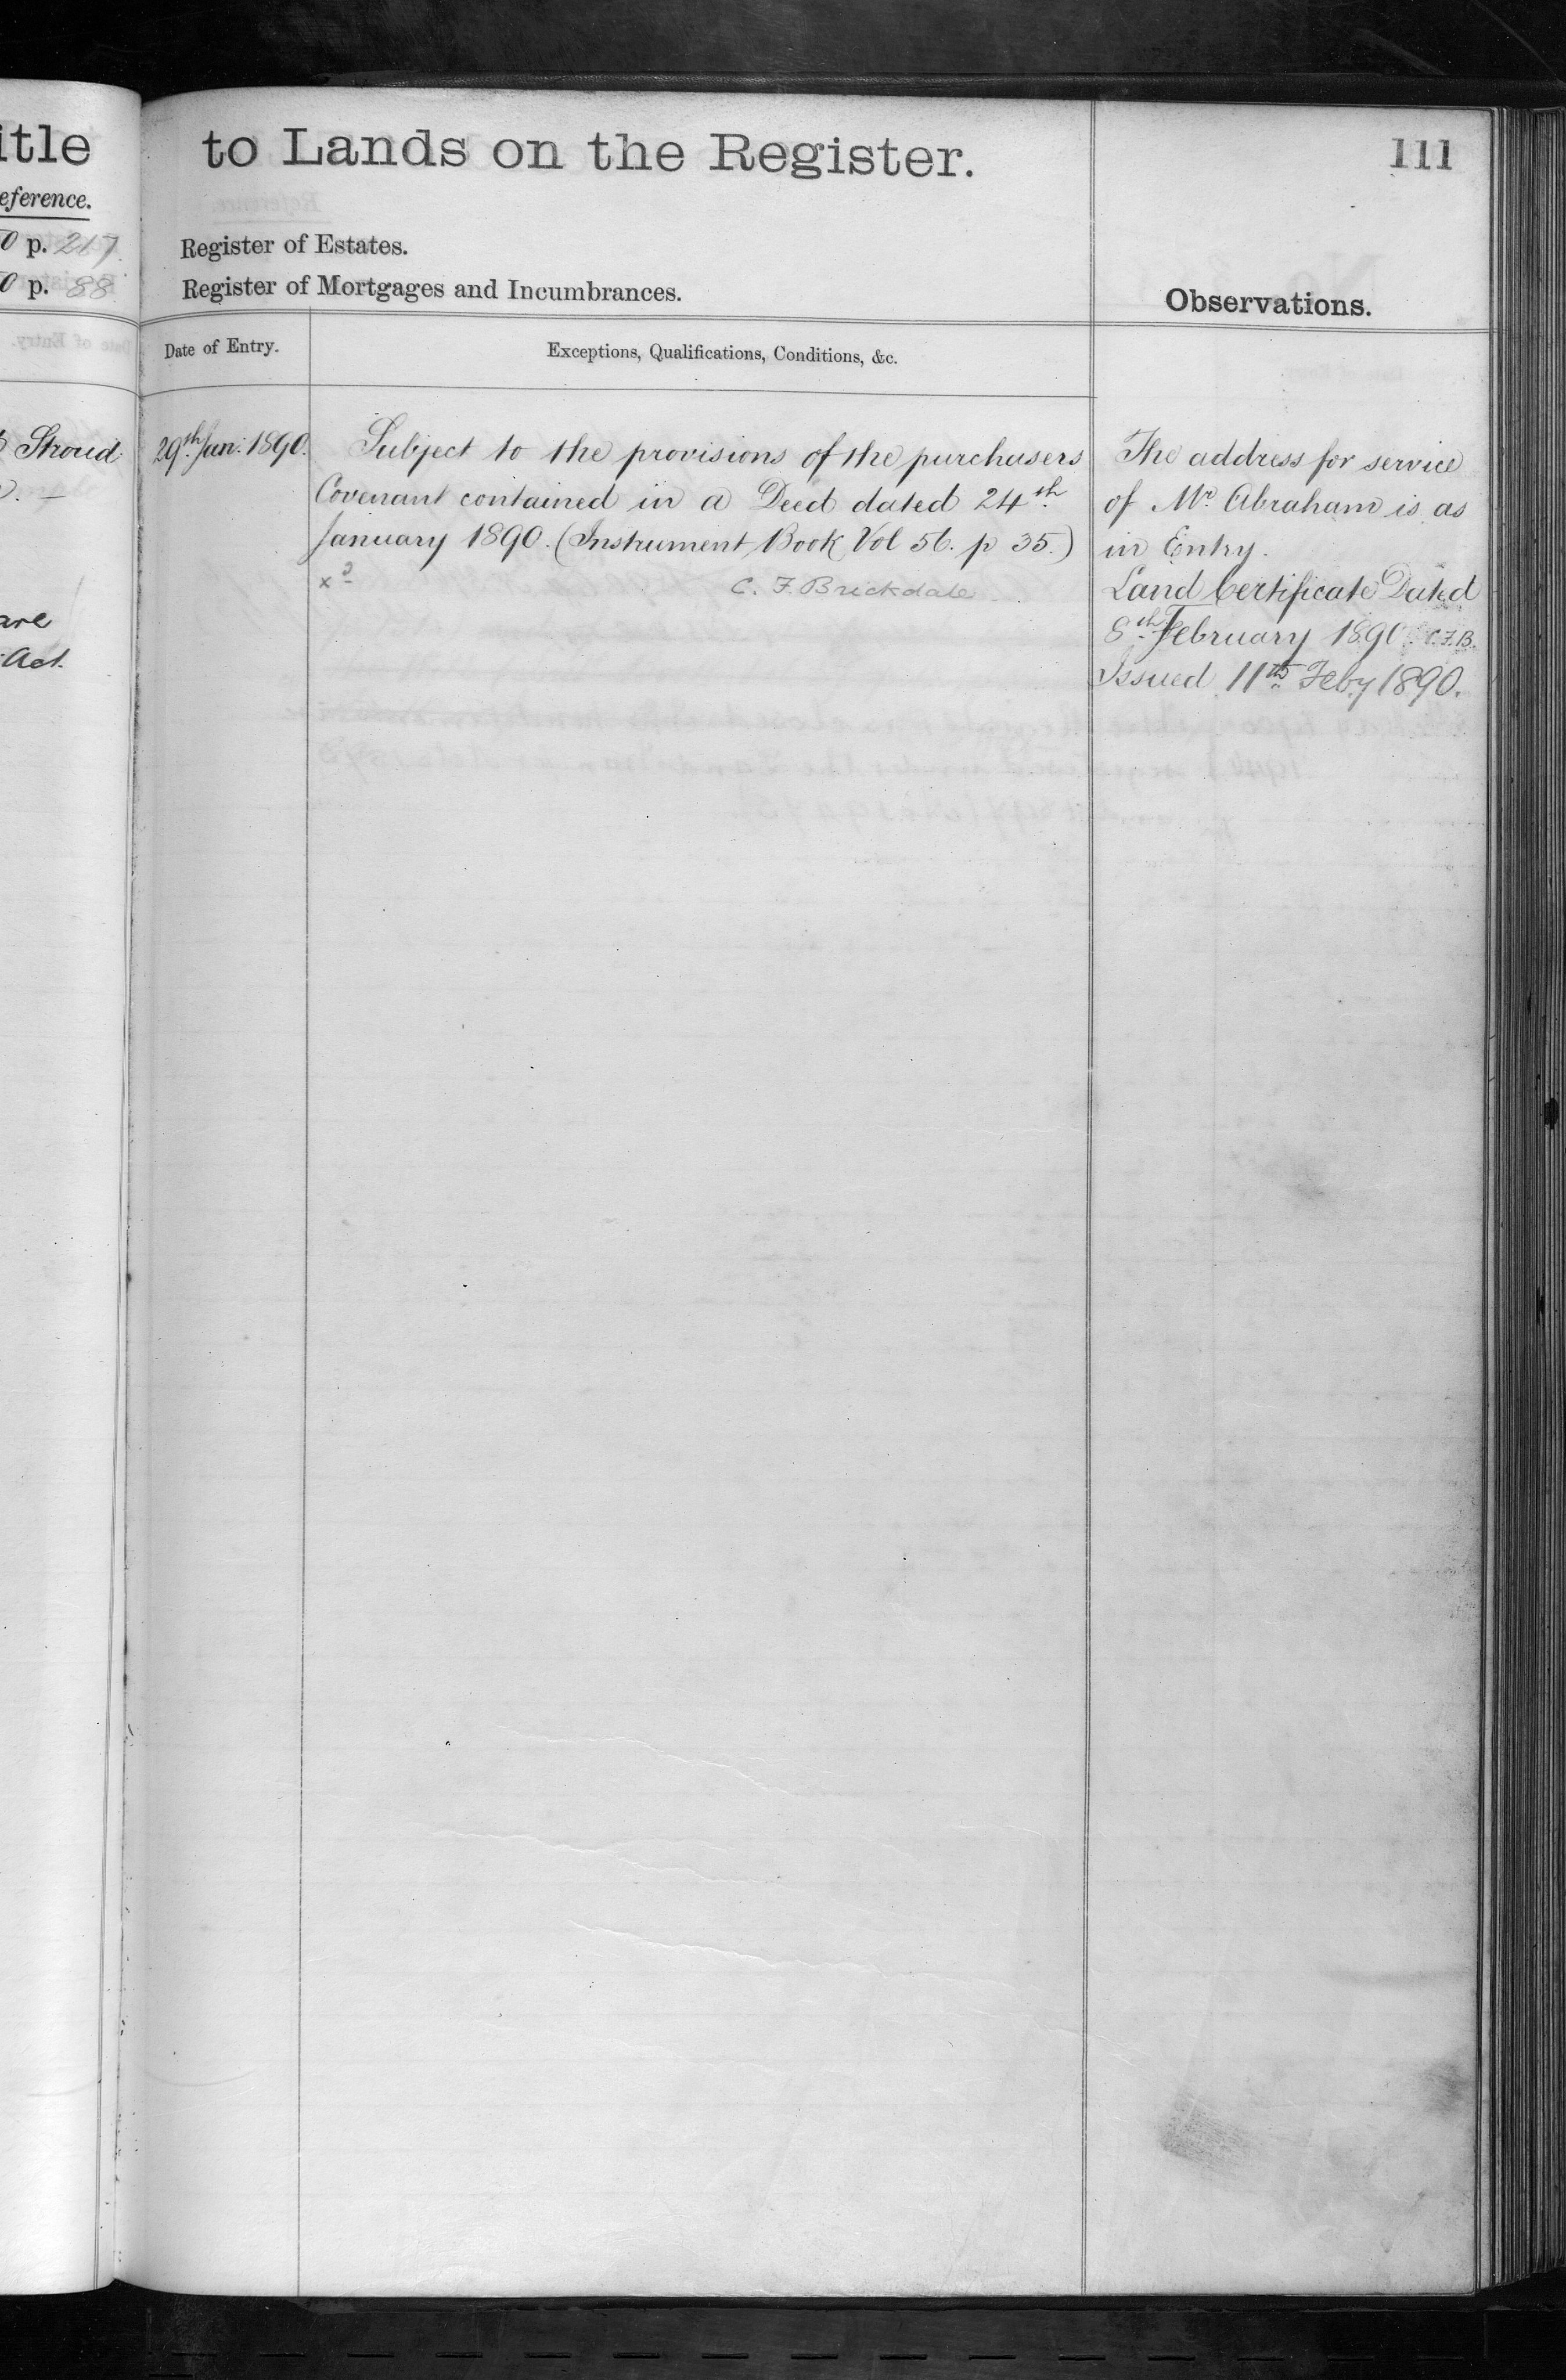 itle
eference.
0 p. 217.
0 p. 88
Stroud
are
Act.
to Lands on the Register.
111
Register of Estates.
Register of Mortgages and Incumbrances.
Observations.
Date of Entry.
Exceptions, Qualifications, Conditions, &c.
29th Jan: 1890.
Subject to the provisions of the purchasers
Covenant contained in a Deed dated 24th
January 1890. (Instrument Book Vol 56. p 35.)
C. F. Brickdale
The address for service
of Mr. Abraham is as
in Entry.
Land Certificate Dated
8th February 1890. C.F.B.
Issued 11th Feby 1890.